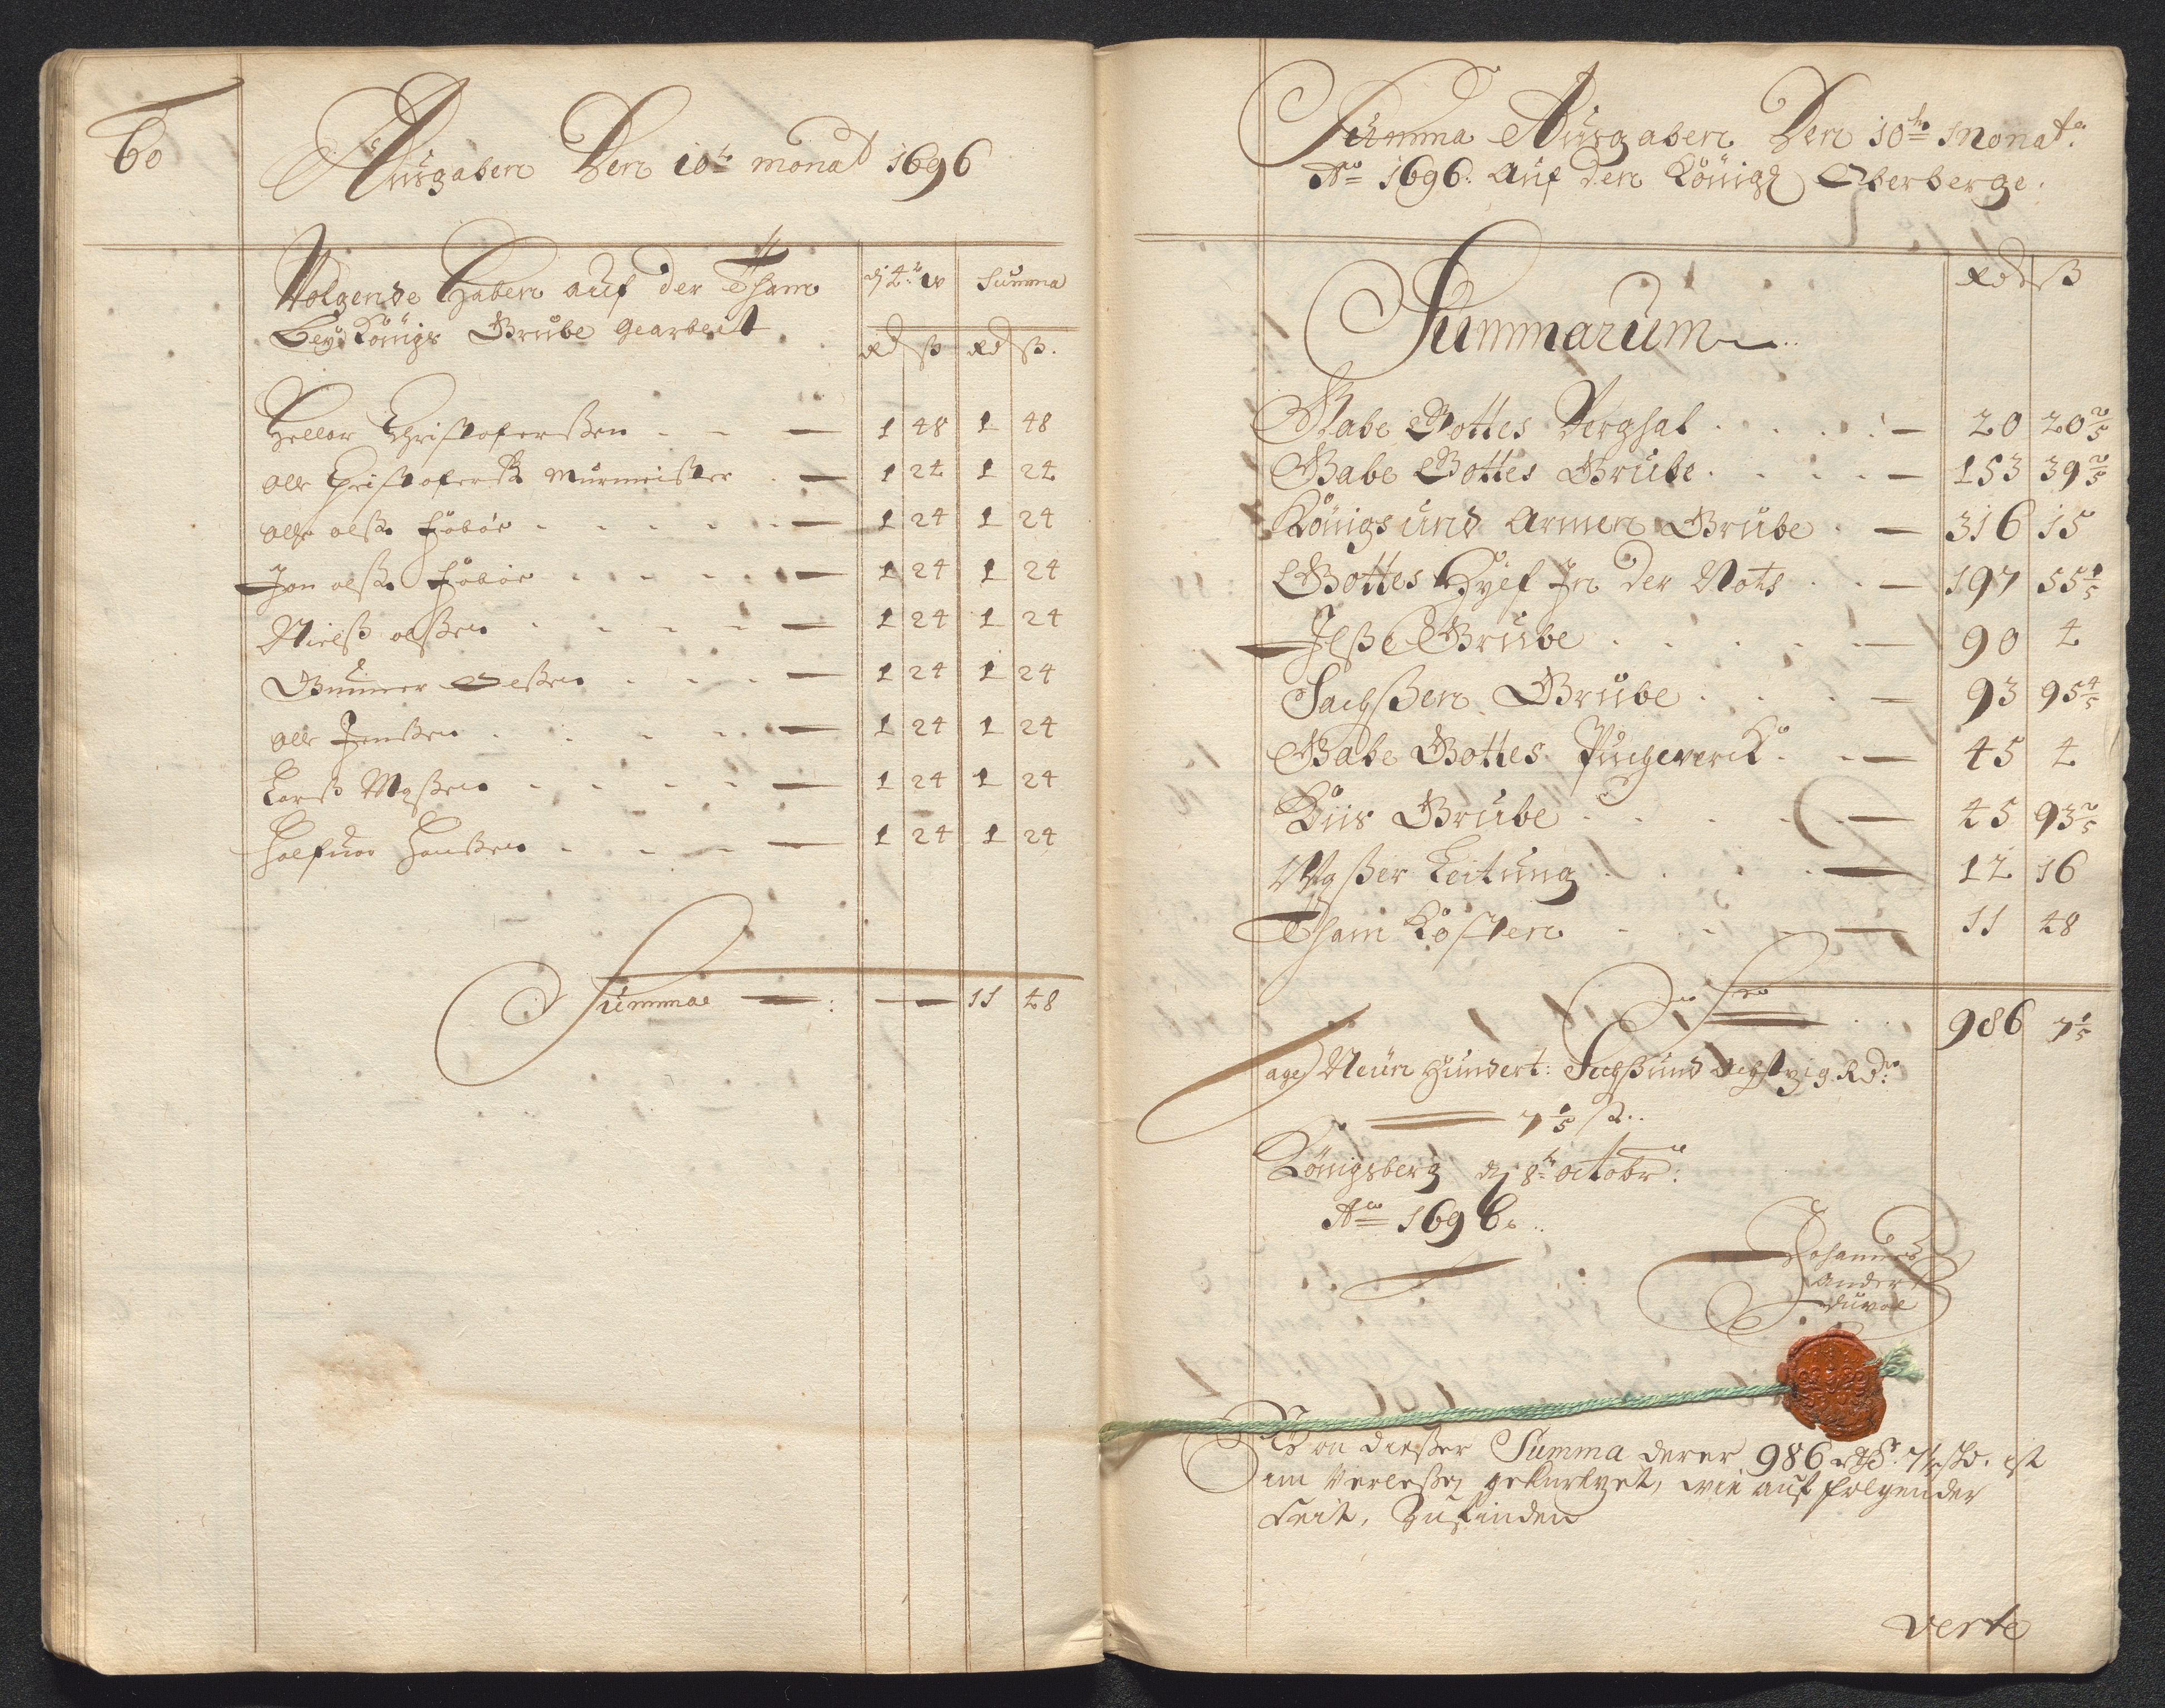 60
Ausgaben Den 10te monat 1696
Volgende Haben auf der Tham
Bey Königs Grube gearbeit
dj 4te w Summa
Rd ß Rd ß.
Christofersßen - - — 1 48 1 48
olle Christofersß Murmeister . — 1 24 1 24
olle olß. - - - — 1 24 1 24
Jon olß. . . . — 1 24 1 24
Nielß olßen - - - — 1 24 1 24
Gunner Oelßen . - . — 1 24 1 24
olle Jenßen . . - - — 1 24 1 24
Larß - - - — 1 24 1 24
Halfuor Hanßen - - - — 1 24 1 24
Summa — : — 11 48
Summa Ausgaben Den 10te Monat.
Ao 1696. auf den Königl Oberberge.
Rd ß
Summarum
Gabe Gottes Berghal . . . . — 20 20 2/5
Gabe Gottes Grube . . . . — 153 39 2/5
Königs und Armen Grube . — 316 15
Gottes Hylf In der Noht . . — 197 55 1/5
Ilße Grube . . . . . — 90 4
Sachßen Grube . . . — 93 95 4/5
Gabe Gottes Puchwerck . . — 45 4
Küis Grube . . . . — 45 93 2/5
Waßer Leitung . . . . — 12 16
Tham Kosten - - - — 11 48
986 7 1/5
Neun Hundert: Sechßund Achtzig Rdr
7 1/5 ß..
Königsberg dj 8te octobr:
Ao 1696.
Johannes
Anders
Duval
Von dießer Summa derer 986 7 1/5 ß. ist
im verleßen gekürtzet, wie auf folgender
seit, Zufinden
verte